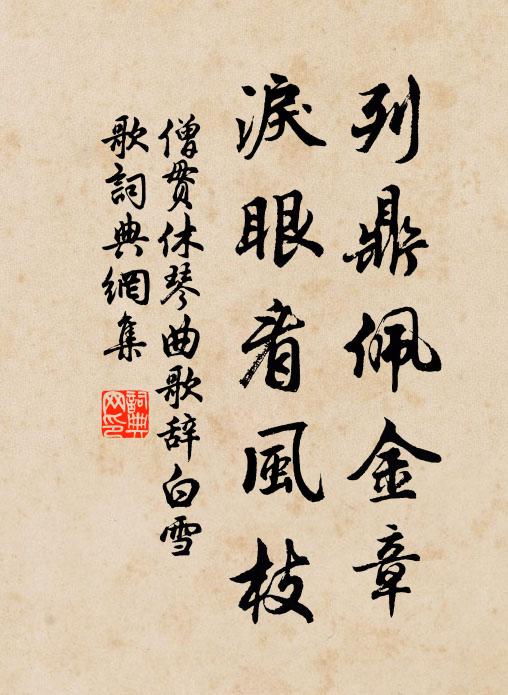 列鼎佩金章
淚眼看風枝
僧貫休琴曲歌辞白雪
歌詞典網集
詞典網印